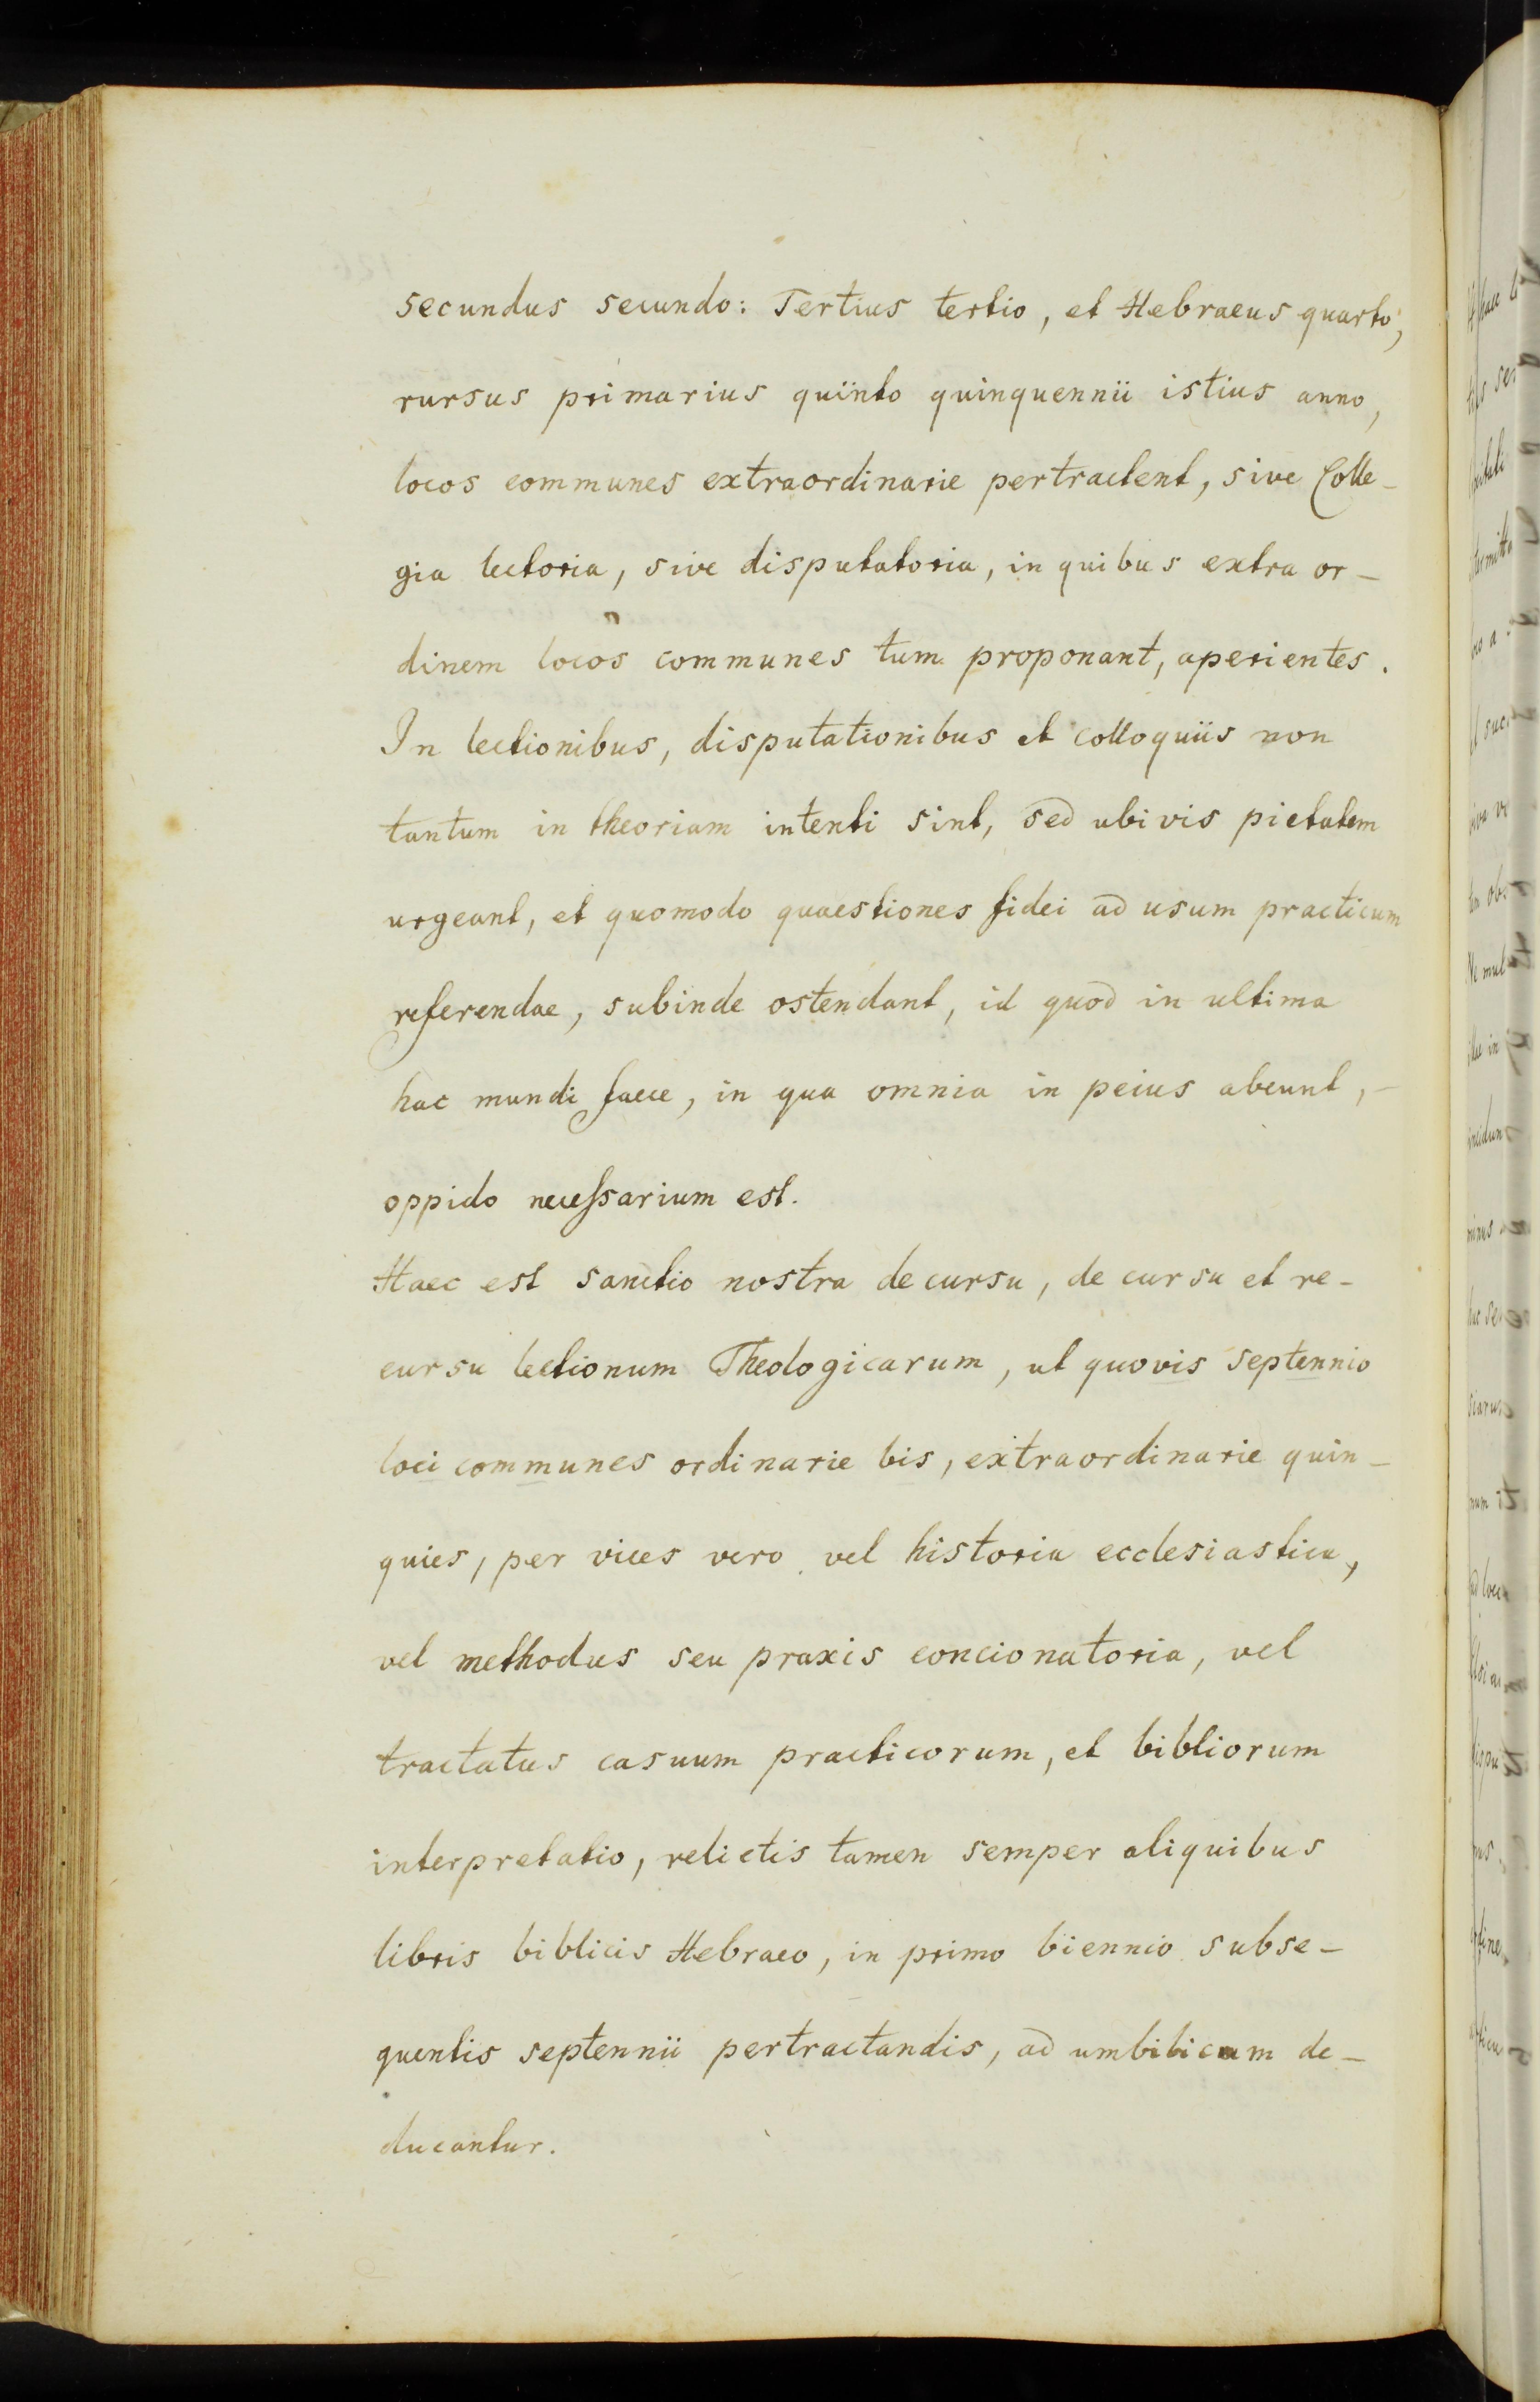 secundus secundo: Tertius tertio, et Hebraeus quarto,
rursus primarius quinto quinquennii istius anno,
locos communes extraordinarie pertractent, sive Colle-
gia lectoria, sive disputatoria, in quibus extra or-
dinem locos communes tum proponant, aperientes.
In lectionibus, disputationibus et colloquiis non
tantum in theoriam intenti sint, sed ubivis pietatem
urgeant, et quomodo quaestiones fidei ad usum practicum
referendae, subinde ostendant, id quod in ultima
hac mundi faece, in qua omnia in peius abeunt,
oppido necessarium est.
Haec est sanctio nostra de cursu, de cursu et re-
cursu lectionum Theologicarum, ut quovis septennio
loci communes ordinarie bis, extraordinarie quin-
quies, per vices vero vel historia ecclesiastica,
vel methodus seu praxis concionatoria, vel
tractatus casuum practicorum, et bibliorum
interpretatio, relictis tamen semper aliquibus
libris biblicis Hebraeo, in primo biennio subse-
quentis septennii pertractandis, ad umbilicum de-
ducantur.